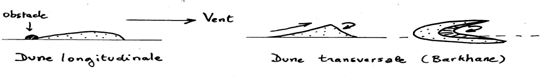 obstacle
Vent
Dune longitudinale
Dune transversale (Barkhane)